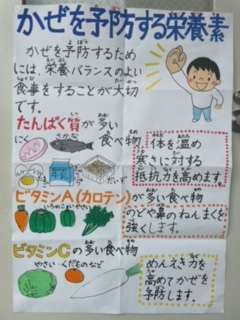 かぜを予防する栄養素
かぜを予防するため
には、栄養バランスのよい
食事をすることが大切
です。
たんぱく質が多い
食べ物
にく
さかな
体を温め
寒さに対する
抵抗力を高めます。
ビタミンA(カロテン)が多い食べ物
いろのこいやさい
のどや鼻のねんまくを
強くします。
ビタミンCの多い食べ物
やさい・くだものなど
めんえき力を
高めてかぜを
予防します。